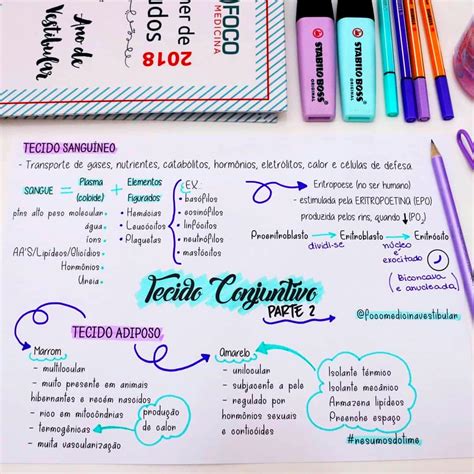 FOCO
MEDICINA
Ano de
Vestibular
2018
STABILO BOSS
ORIGINAL
STABILO BOSS
ORIGINAL
TECIDO SANGUÍNEO
- Transporte de gases, nutrientes, catabólitos, hormônios, eletrólitos, calor e células de defesa
SANGUE = Plasma (coloide) + Elementos Figurados
ptns alto peso molecular
água
íons
AA'S/Lipídeos/Glicídios
Hormônios
Ureia
• Hemácias
• Leucócitos
• Plaquetas
EX.:
• basófilos
• eosinófilos
• linfócitos
• neutrófilos
• mastócitos
Eritropoese (no ser humano)
- estimulada pela ERITROPOETINA (EPO)
produzida pelos rins, quando ↓(PO₂)
Proeritroblasto → Eritroblasto → Eritrócito
dividi-se
núcleo
é
exocitado
(Bicôncava
e anucleada)
Tecido Conjuntivo
PARTE 2
@focomedicinavestibular
TECIDO ADIPOSO
Marrom
- multilocular
- muito presente em animais
hibernantes e recém nascidos
- rico em mitocôndrias
- termogênicas
- muita vascularização
produção
de calor
Amarelo
- unilocular
- subjacente a pele
- regulado por
hormônios sexuais
e corticóides
Isolante térmico
Isolante mecânico
Armazena lipídeos
Preenche espaço
#resumosdotime